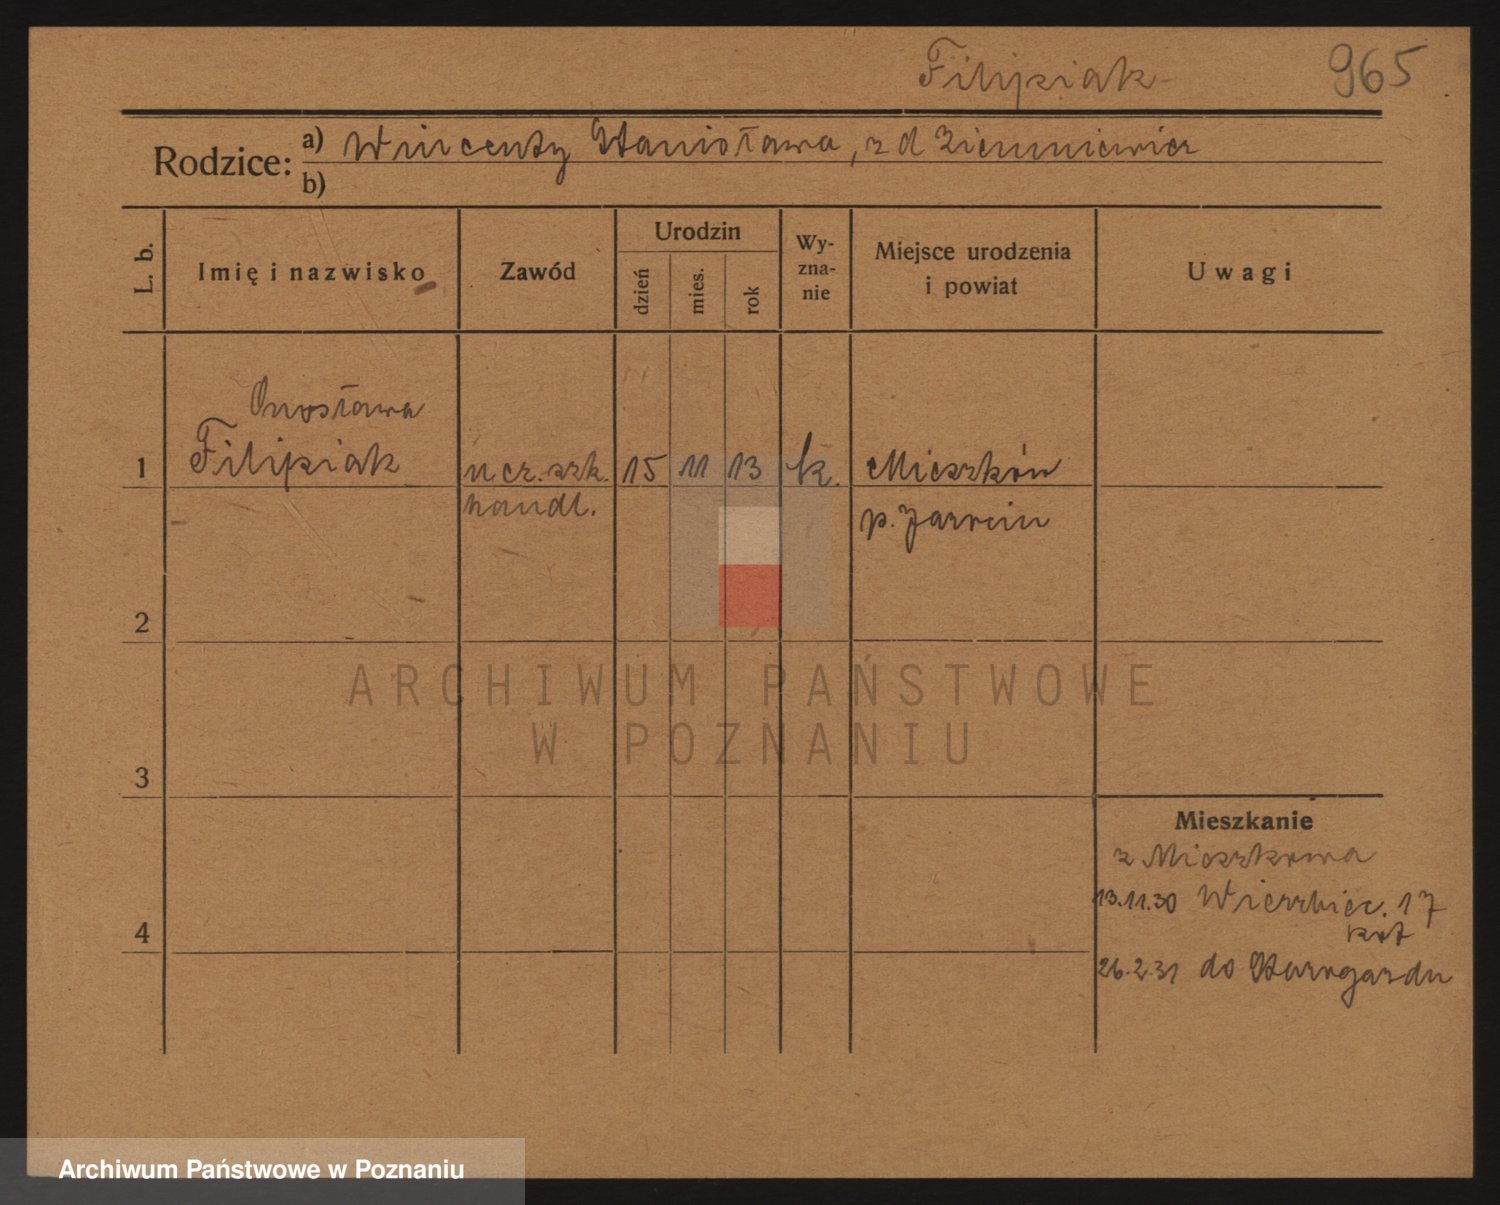 Filipiak 965
Rodzice: a) Wincenty Stanisława, z d Ziemniewicz
b)
L. b. Imię i nazwisko Zawód Urodzin dzień mies. rok Wy-zna-nie Miejsce urodzenia i powiat Uwagi
1 Filipiak ucz. szk. 15 11 13 k. Mieszków
handl. p. Jarocin
2
ARCHIWUM PAŃSTWOWE
W POZNANIU
3
Mieszkanie
z Mieszkowa
13.11.30 Wierzbięc. 17
4
26.2.31 do Starogardu
Archiwum Państwowe w Poznaniu